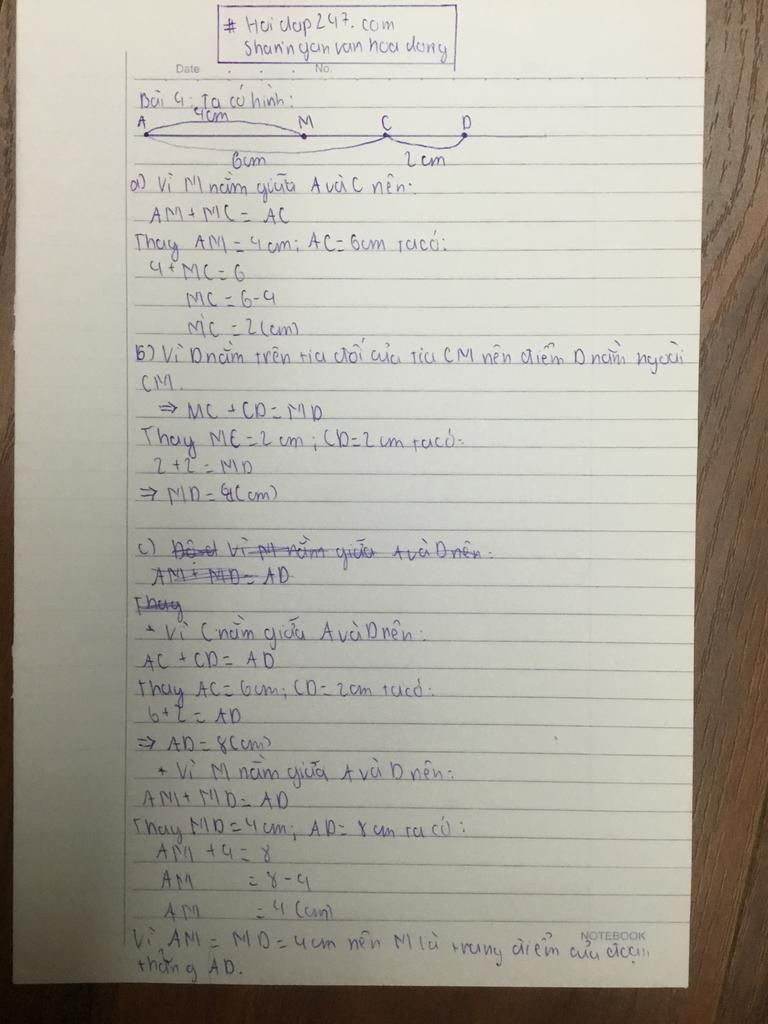 # Hoidap247.com
shannyanvanhoadong
Date . . . No.
Bài 4: Ta có hình:
4cm
A M C D
6cm 2cm
a) Vì M nằm giữa A và C nên:
AM + MC = AC
Thay AM = 4cm; AC = 6cm ta có:
4 + MC = 6
MC = 6-4
MC = 2(cm)
b) Vì D nằm trên tia đối của tia CM nên điểm D nằm ngoài
CM.
⇒ MC + CD = MD
Thay MC = 2cm; CD = 2cm ta có:
2 + 2 = MD
⇒ MD = 4(cm)
c) Vì M nằm giữa A và D nên:
AM + MD = AD
Thay
+ Vì C nằm giữa A và D nên:
AC + CD = AD
Thay AC = 6cm; CD = 2cm ta có:
6 + 2 = AD
⇒ AD = 8(cm)
+ Vì M nằm giữa A và D nên:
AM + MD = AD
Thay MD = 4cm; AD = 8cm ta có:
AM + 4 = 8
AM = 8-4
AM = 4(cm)
NOTEBOOK
Vì AM = MD = 4cm nên M là trung điểm của đoạn
thẳng AD.